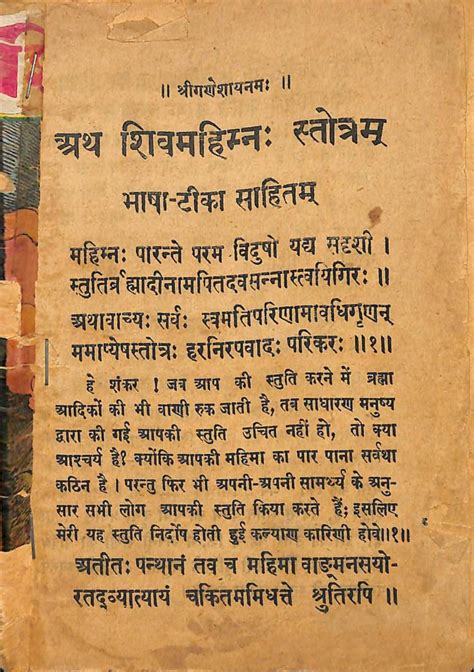 ॥ श्रीगणेशायनमः ॥
अथ शिवमहिम्नः स्तोत्रम्
भाषा-टीका साहितम्
महिम्नः पारन्ते परम विदुषो यद्य सदृशी ।
स्तुतिर्ब्रह्मादीनामपितदवसन्नास्त्वयिगिरः ॥
अथावाच्यः सर्वः स्वमतिपरिणामावधिगृणन्
ममाप्येषस्तोत्रः हरनिरपवादः परिकरः ॥१॥
हे शंकर ! जब आप की स्तुति करने में ब्रह्मा
आदिकों की भी वाणी रुक जाती है, तब साधारण मनुष्य
द्वारा की गई आपकी स्तुति उचित नहीं हो, तो क्या
आश्चर्य है? क्योंकि आपकी महिमा का पार पाना सर्वथा
कठिन है । परन्तु फिर भी अपनी-अपनी सामर्थ्य के अनु-
सार सभी लोग आपकी स्तुति किया करते हैं; इसलिए
मेरी यह स्तुति निर्दोष होती हुई कल्याण कारिणी होवे॥१॥
अतीतः पन्थानं तव च महिमा वाङ्मनसयो-
रतद्व्यात्यायं चकितममिधत्ते श्रुतिरपि ॥